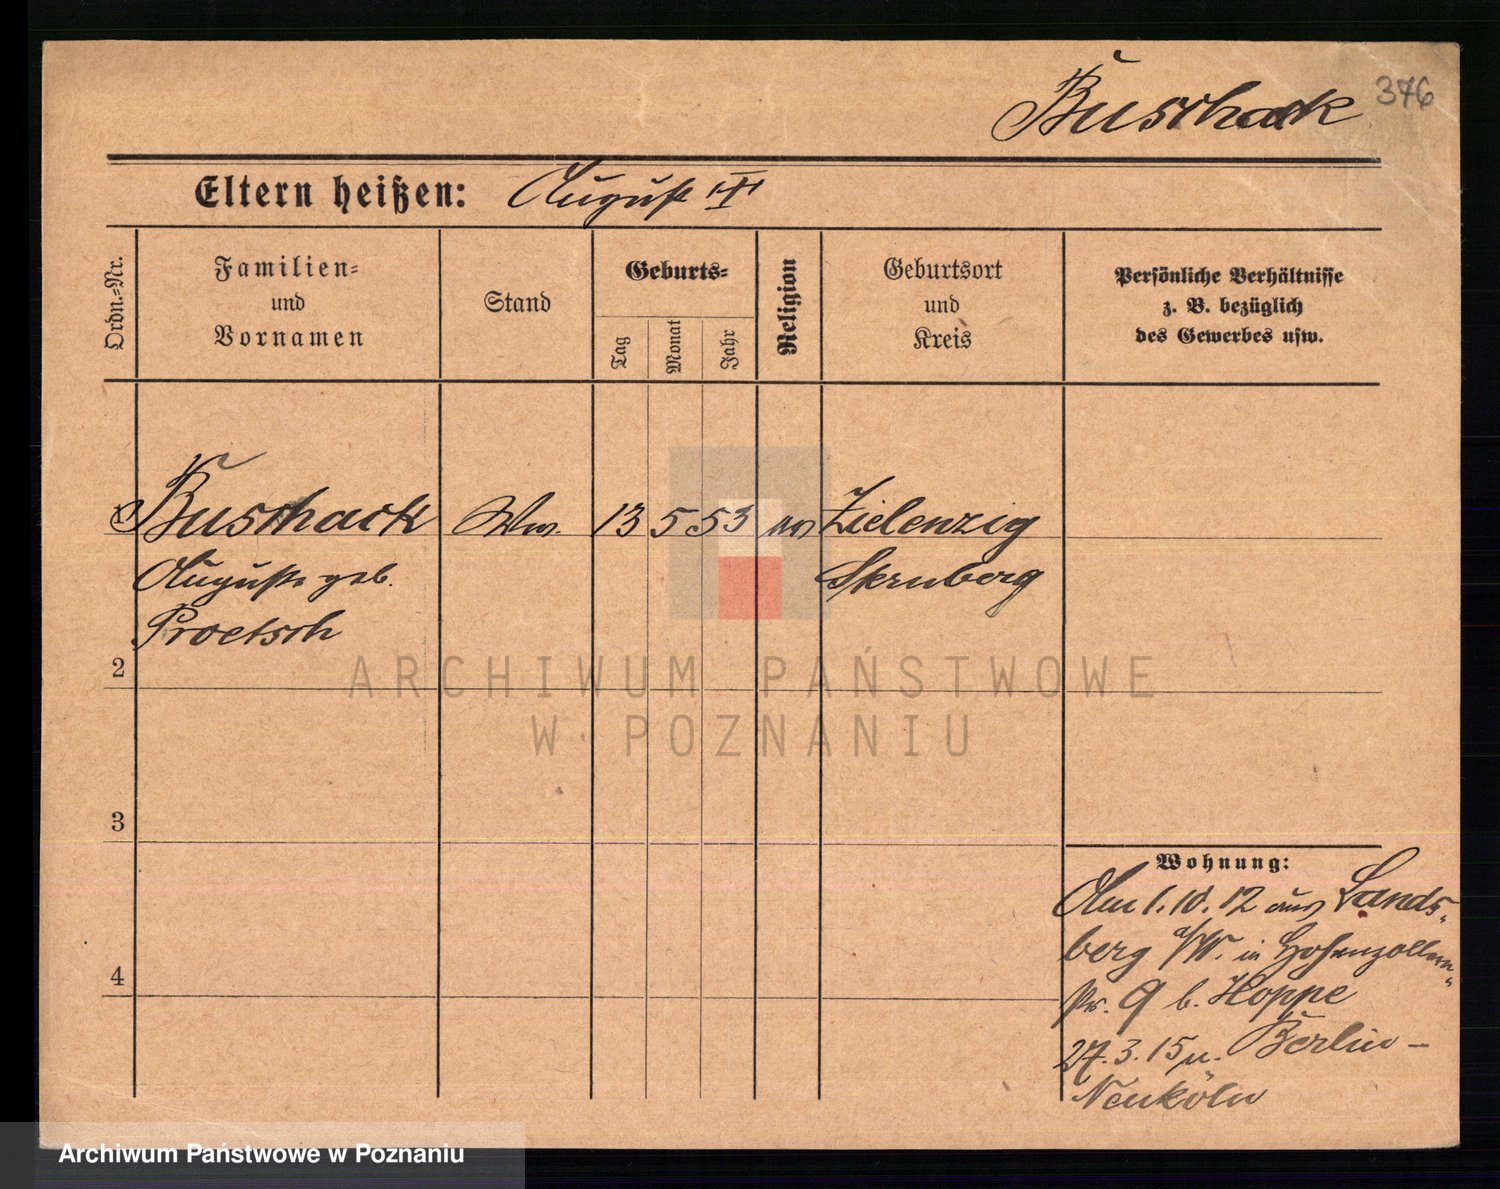 Buschack 376
Eltern heißen: August III
Ordn.=Nr.
Familien=
und
Vornamen
Stand
Geburts=
Tag
Monat
Jahr
Religion
Geburtsort
und
Kreis
Persönliche Verhältnisse
z. B. bezüglich
des Gewerbes usw.
Buschack Ww. 13 5 53 ev Zielenzig
Auguste geb. Sternberg
Proetsch
2
ARCHIWUM PAŃSTWOWE
W POZNANIU
3
Wohnung:
Am 1.10.12 aus Lands=
berg a/W. in Hohenzollern=
str. 9 b. Hoppe
4
27.3.15 n. Berlin-
Neuköln
Archiwum Państwowe w Poznaniu